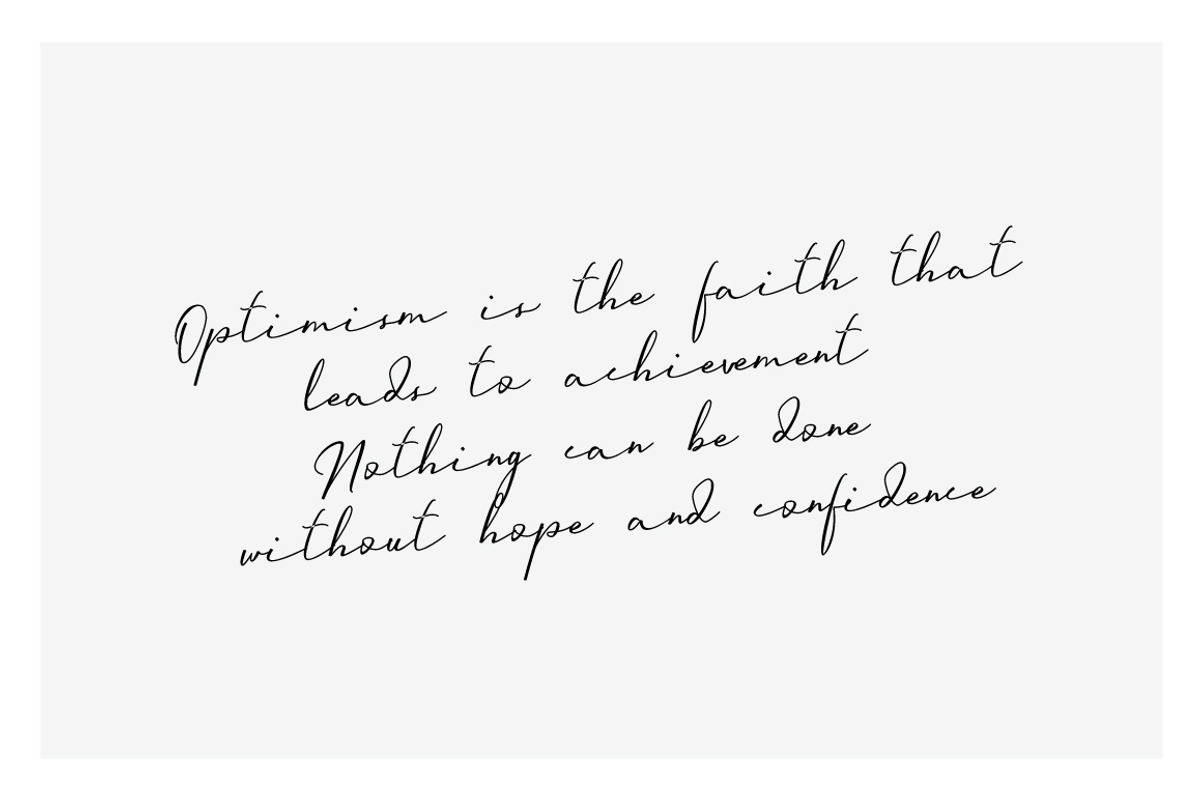 Optimism is the faith that
leads to achievement
Nothing can be done
without hope and confidence